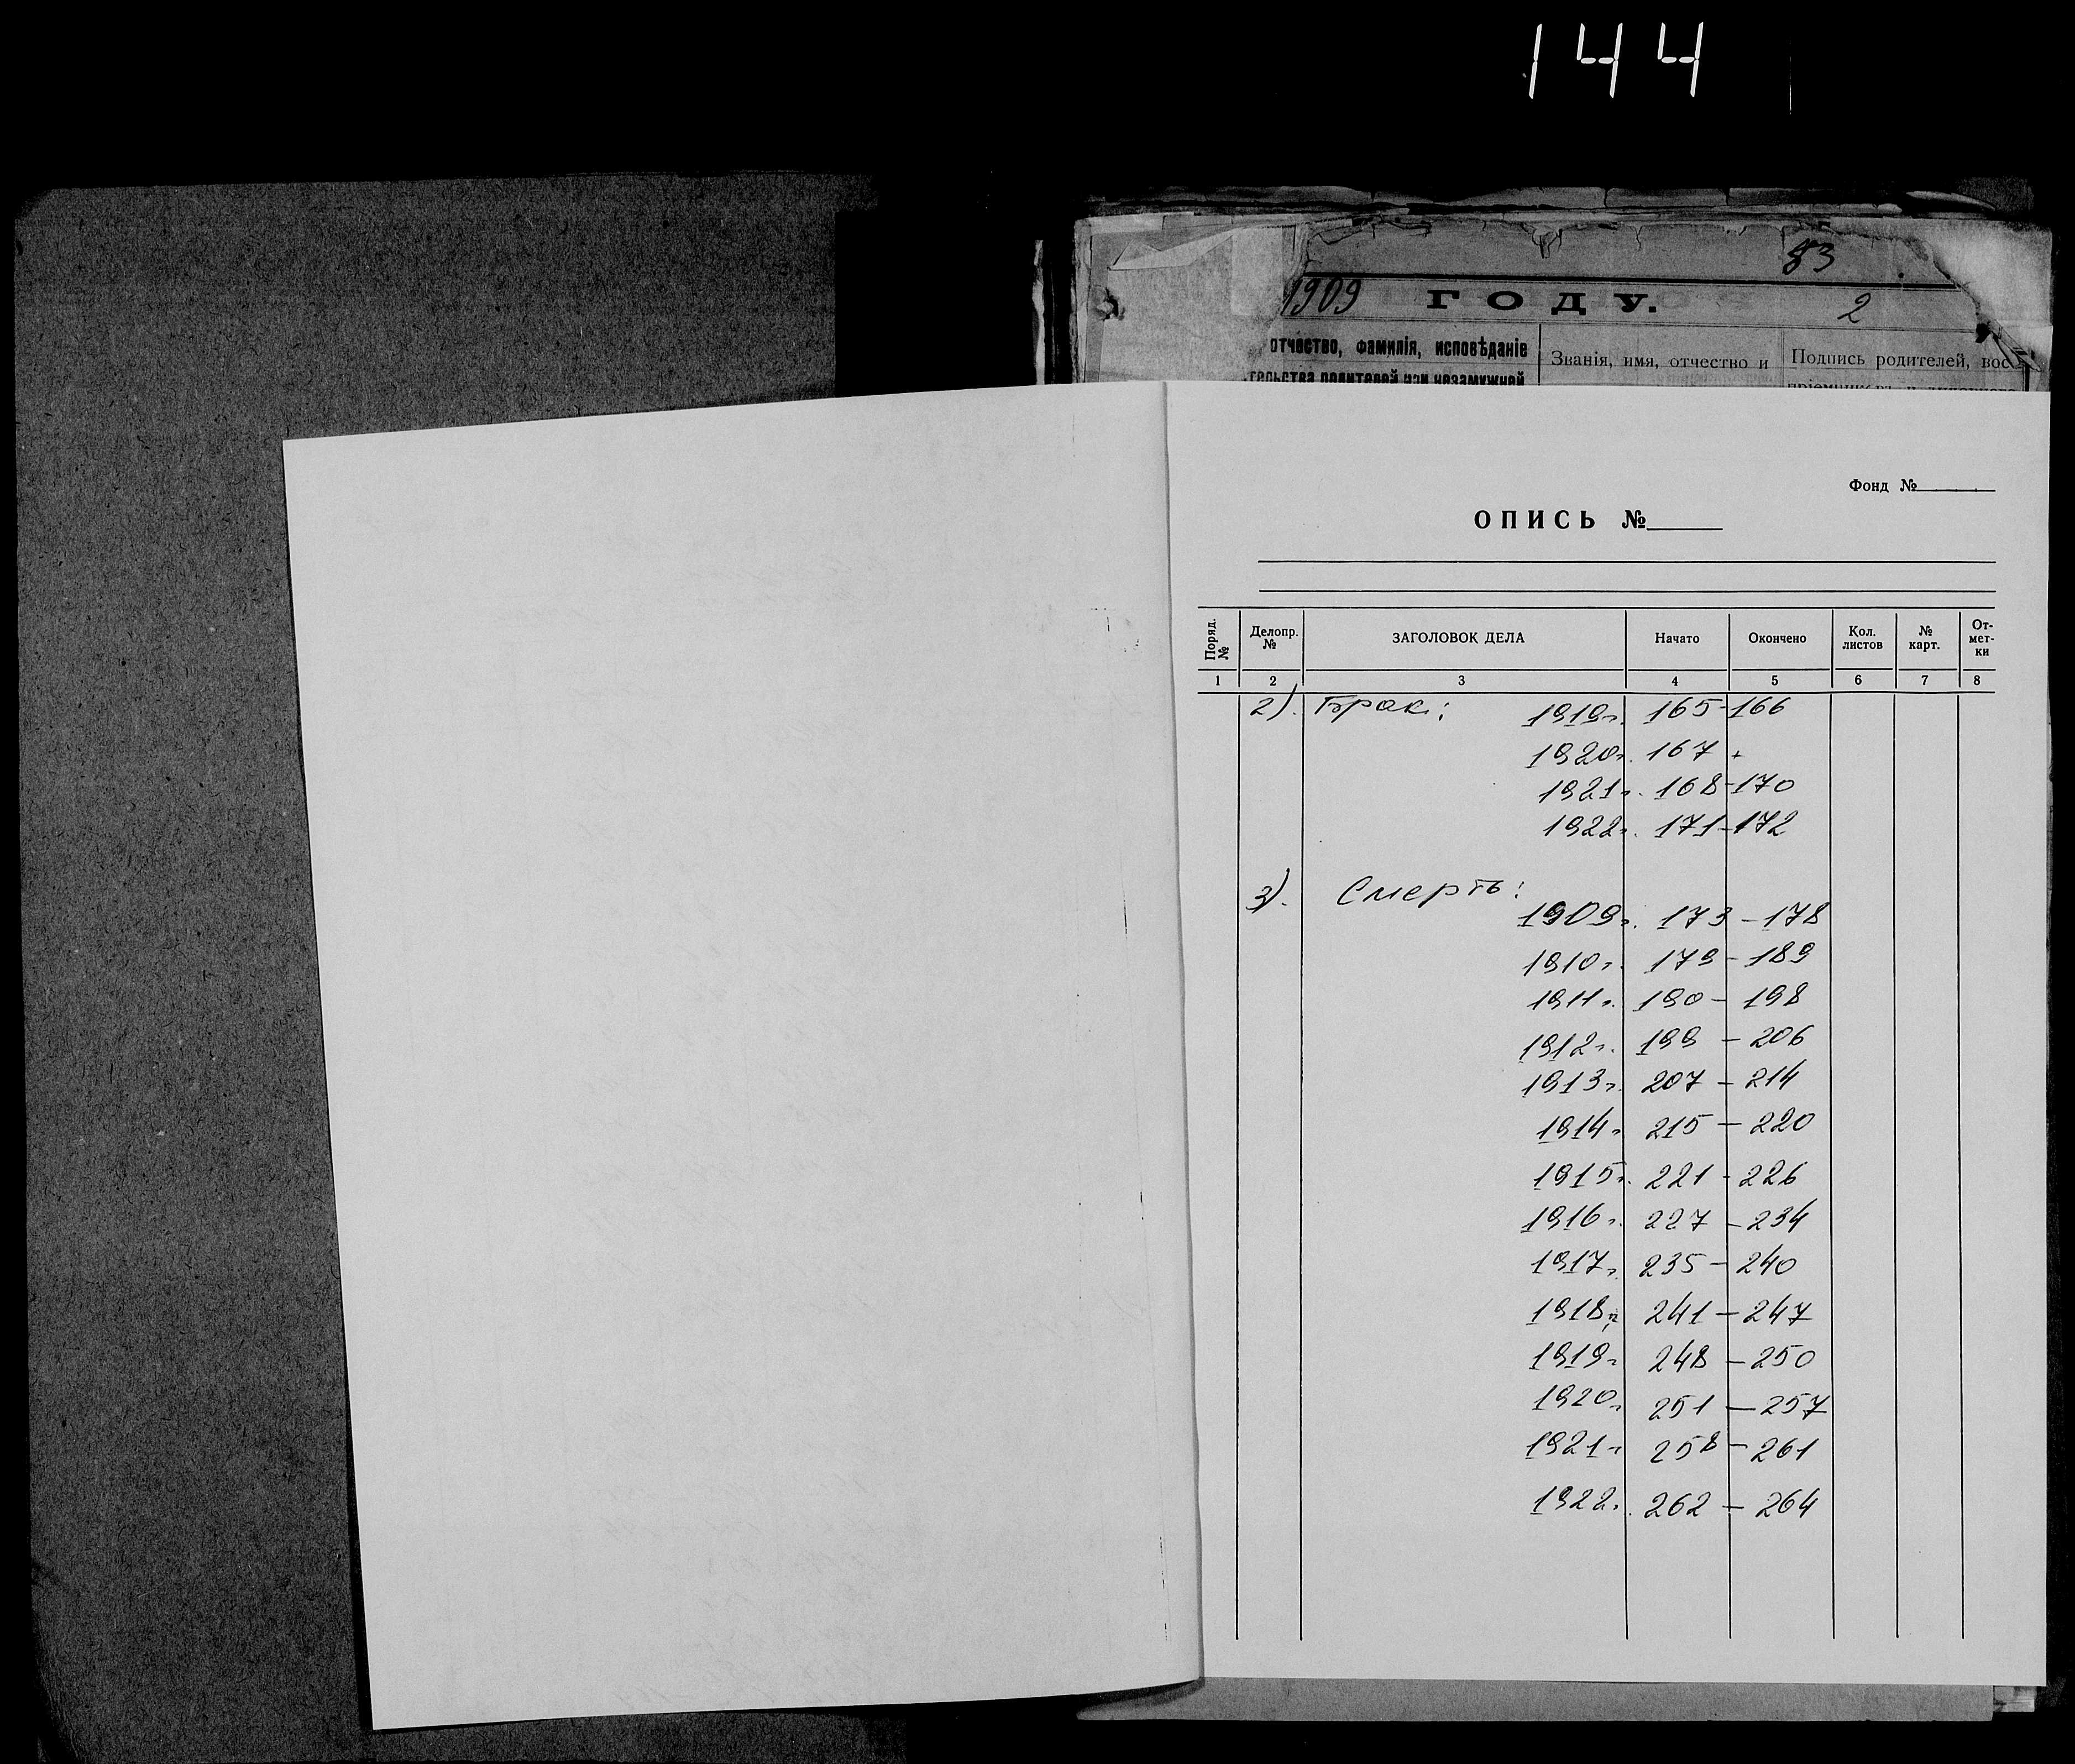 144
83
1909 ГОДУ. 2
отчество, фамилія, исповѣданіе
Званія, имя, отчество и
Подпись родителей, вос
родителей или незамужней
Фонд №
ОПИСЬ №
Поряд. № Делопр. № ЗАГОЛОВОК ДЕЛА Начато Окончено Кол. листов № карт. От-мет-ки
1 2 3 4 5 6 7 8
2). Брак: 1919г. 165-166
1920г. 167
1921г. 168-170
1922г. 171-172
3). Смерть:
1909г. 173-178
1910г. 179-189
1911г. 190-198
1912г. 199-206
1913г. 207-214
1914г. 215-220
1915г. 221-226
1916г. 227-234
1917г. 235-240
1918г. 241-247
1919г. 248-250
1920г. 251-257
1921г. 258-261
1922г. 262-264